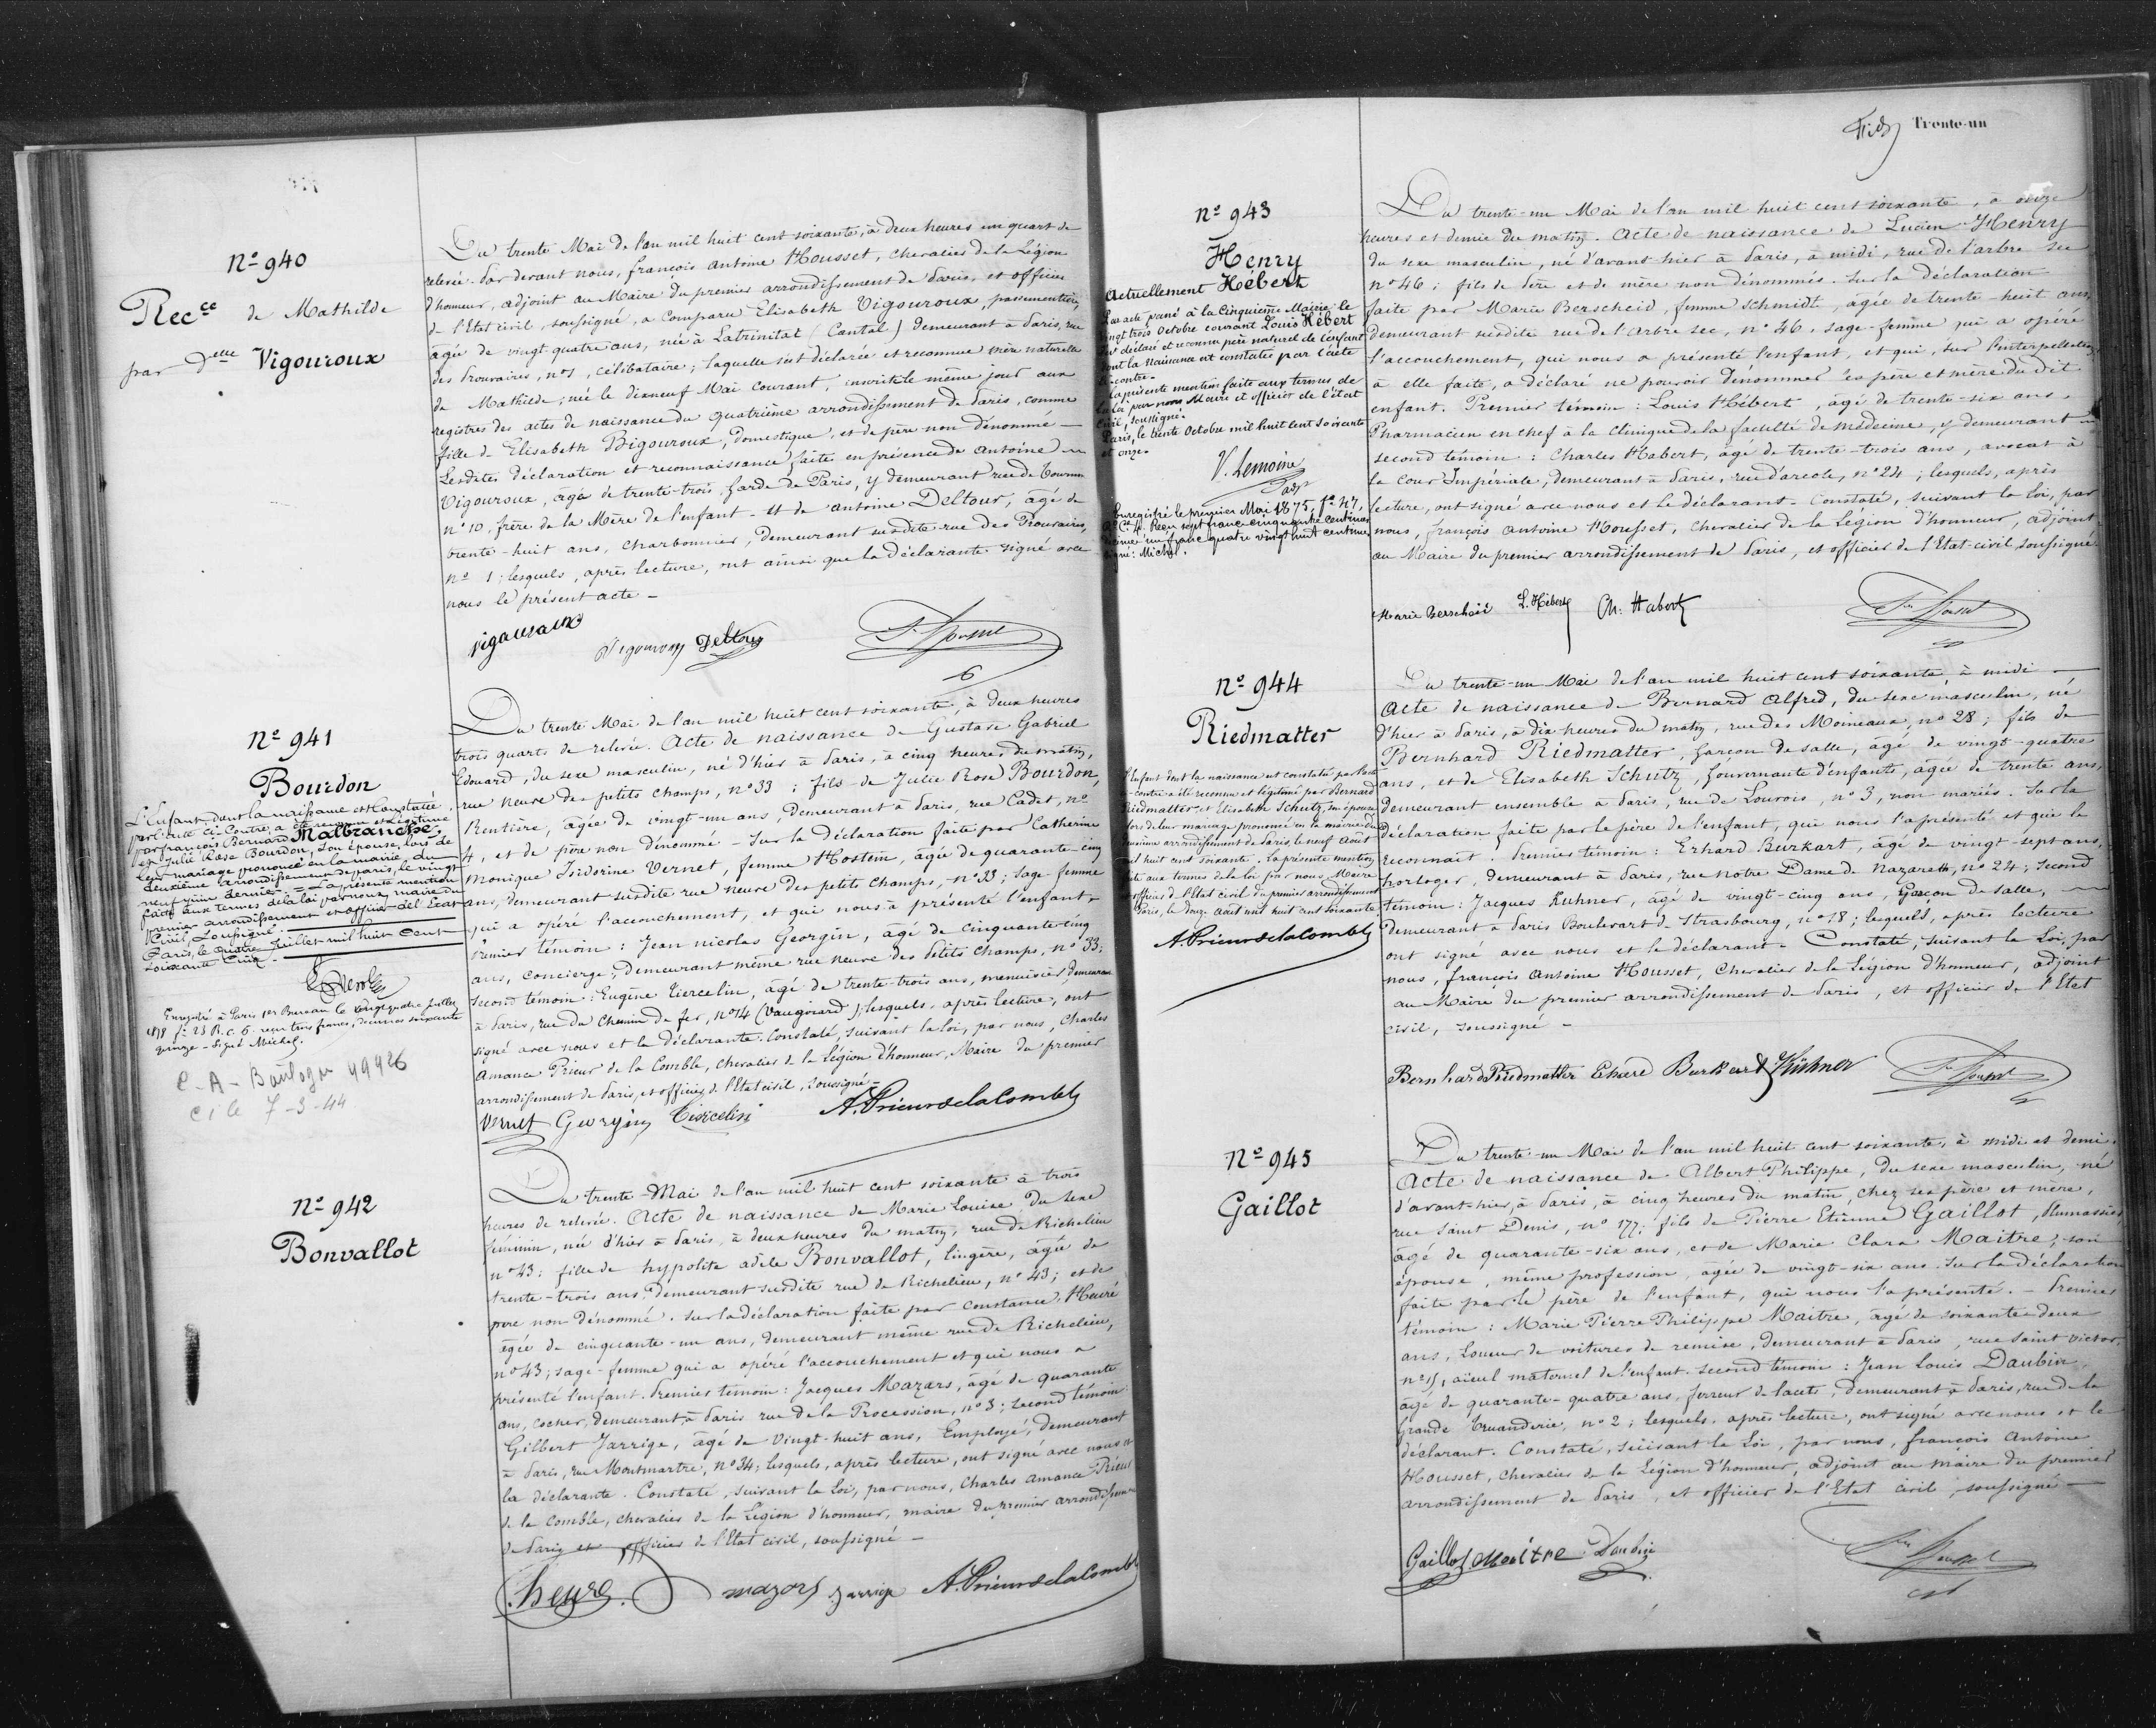 N° 940
Rec.ce de Mathilde
par d.elle Vigouroux
Du trente Mai de l'an mil huit cent soixante, à deux heures un quart de
relevée. Par devant nous, françois antoine Housset, chevalier de la Légion
d'honneur, adjoint au Maire du premier arrondissement de Paris, et officier
de l'Etat civil, soussigné, a comparu Elisabeth Vigouroux, passementière,
agée de vingt quatre ans, née à Latrinitat (Cantal) demeurant à Paris, rue
des Prouvaires, n° 1, célibataire; laquelle s'est déclarée et reconnue mère naturelle
de Mathilde, née le dixneuf Mai courant, inscrite le même jour aux
registres des actes de naissance du quatrième arrondissement de Paris, comme
fille de Elisabeth Bigouroux, Domestique, et de père non dénommé —
Lesdites déclaration et reconnaissance faites en présence de antoine
Vigouroux, agé de trente-trois, Garde de Paris, y demeurant rue de Tournon
n° 10, frère de la Mère de l'enfant — et de antoine Deltour, âgé de
trente-huit ans, charbonnier, demeurant susdite rue des Prouvaires,
n° 1; lesquels, après lecture, ont ainsi que la Déclarante signé avec
nous le présent acte —
vigauraux Vigouroux Deltour
N° 941
Bourdon
L'Enfant dont la naissance est constatée
par l'acte ci-Contre, a été reconnu et légitimé
par françois Bernard Malbranche,
et Julie Rose Bourdon, son épouse, lors de
leur mariage prononcé en la mairie du
deuxième arrondissement de paris, le vingt
neuf juin dernier. = La présente mention
faite aux termes de la loi par nous, maire du
premier arrondissement et officier de l'Etat
Civil, Soussigné.
Paris, le quatre Juillet mil huit Cent
soixante Cinq.
Enregistré à Paris 1er Bureau le vingt quatre juillet
1878 f° 23 R. C. 6. reçu trois francs, décimes soixante
quinze — Signé Michel.
C. A - Boulogne 49926
ci le 7-3-44
Du trente Mai de l'an mil huit cent soixante, à deux heures
trois quarts de relevée. Acte de naissance de Gustave Gabriel
Edouard, du sexe masculin, né d'hier à Paris, à cinq heures du matin,
rue neuve des petits champs, n° 33; fils de Julie Rose Bourdon,
Rentière, âgée de vingt-un ans demeurant à Paris, rue Cadet, n°
4, et de père non dénommé — Sur la déclaration faite par Catherine
Monique Isidorine Vernet, femme Hostein, agée de quarante-cinq
ans, demeurant susdite rue neuve des petits champs, n° 33; sage femme
qui a opéré l'accouchement, et qui nous a présenté l'enfant.
Premier témoin: Jean nicolas Georgin, agé de cinquante-cinq
ans, concierge, demeurant même rue neuve des Petits champs, n° 33;
second témoin: Eugène Tiercelin, agé de trente-trois ans, menuisier, demeurant
à Paris, rue du Chemin de fer, n° 14 (Vaugirard); lesquels, après lecture, ont
signé avec nous et la déclarante. Constaté, suivant la loi, par nous, Charles
Amance Prieur de la Comble, chevalier de la Légion d'honneur, Maire du premier
arrondissement de Paris, et officier de l'Etat civil, soussigné —
Vernet Georgin Tiercelin A. Prieur de la Comble
N° 942
Bonvallot
Du trente Mai de l'an mil huit cent soixante à trois
heures de relevée. Acte de naissance de Marie Louise, du sexe
féminin, née d'hier à Paris, à deux heures du matin, rue de Richelieu
n° 43; fille de hypolite adèle Bonvallot, lingère, agée de
trente-trois ans, demeurant susdite rue de Richelieu, n° 43; et de
père non dénommé. Sur la déclaration faite par constance Heuré
âgée de cinquante-un ans, demeurant même rue de Richelieu,
n° 43; sage-femme qui a opéré l'accouchement et qui nous a
présenté l'enfant. Premier témoin: Jacques Mazars, âgé de quarante
ans, cocher, demeurant à Paris rue de la Procession, n° 3; second témoin:
Gilbert Jarrige, âgé de vingt-huit ans, Employé, demeurant
à Paris, rue Montmartre, n° 34; lesquels, après lecture, ont signé avec nous et
la déclarante. Constaté, suivant la Loi, par nous, Charles amance Prieur
de la Comble, chevalier de la Légion d'honneur, maire du premier arrondissement
de Paris et officier de l'Etat civil, soussigné —
heuré. mazars Jarrige A. Prieur de la Comble
Trente-un
N° 943
Henry
Actuellement Hébert
Par acte passé à la Cinquième Mairie le
vingt trois Octobre courant Louis Hébert
s'est déclaré et reconnu père naturel de l'enfant
dont la Naissance est constatée par l'acte
ci-contre.
La présente mention faite aux termes de
la loi par nous Maire et officier de l'état
civil, soussigné.
Paris, le trente Octobre mil huit cent soixante
et onze.
V. Lemoine
adjt
Enregistré le premier Mai 1875, f° 47,
R° C° 4. Reçu sept francs cinquante centimes
décime un franc quatre vingt huit centimes
signé: Michel.
Du trente-un Mai de l'an mil huit cent soixante, à onze
heures et demie du matin. Acte de naissance de Lucien Henry
du sexe masculin, né d'avant-hier à Paris, à midi, rue de l'arbre sec
n° 46; fils de Père et de mère non dénommés. Sur la Déclaration
faite par Marie Berscheid, femme Schmidt, agée de trente-huit ans,
demeurant susdite rue de l'arbre sec, n° 46, sage-femme qui a opéré
l'accouchement, qui nous a présenté l'enfant, et qui, sur l'interpellation
à elle faite, a déclaré ne pouvoir dénommer les père et mère du dit
enfant. Premier témoin: Louis Hébert, âgé de trente-six ans,
Pharmacien en chef à la Clinique de la faculté de médecine, y demeurant
second témoin: Charles Habert, âgé de trente-trois ans, avocat à
la Cour Impériale, demeurant à Paris, rue d'arcole, n° 24; lesquels, après
lecture, ont signé avec nous et le déclarant. Constaté, suivant la Loi, par
nous, françois antoine Housset, chevalier de la Légion d'honneur, adjoint
au Maire du premier arrondissement de Paris, et officier de l'Etat-civil, soussigné.
Marie Berscheid L. Hébert Ch. Habert
N° 944
Riedmatter
L'enfant dont la naissance est constatée par l'acte
ci-contre a été reconnu et légitimé par Bernard
Riedmatter et Elisabeth Schutz, son épouse
lors de leur mariage prononcé en la mairie du
deuxième arrondissement de Paris le neuf Août
mil huit cent soixante. La présente mention
faite aux termes de la loi par nous Maire
et officier de l'Etat civil du premier arrondissement
Paris, le douze Août mil huit cent soixante.
A. Prieur de la Comble
Du trente-un Mai de l'an mil huit cent soixante, à midi —
Acte de naissance de Bernard Alfred, du sexe masculin, né
d'hier à Paris, à dix heures du matin, rue des Moineaux, n° 28; fils de
Bernhard Riedmatter, Garçon de salle, âgé de vingt-quatre
ans, et de Elisabeth Schutz, Gouvernante d'enfants, agée de trente ans,
Demeurant ensemble à Paris, rue de Louvois, n° 3, non mariés. Sur la
Déclaration faite par le père de l'enfant, qui nous l'a présenté et que le
reconnait. Premier témoin: Erhard Burkart, âgé de vingt-sept ans,
horloger, demeurant à Paris, rue Notre Dame de Nazareth, n° 24; second
témoin: Jacques Kuhner, âgé de vingt-cinq ans, Garçon de salle,
demeurant à Paris Boulevart de Strasbourg, n° 18; lesquels, après lecture
ont signé avec nous et le déclarant — Constaté, suivant la Loi, par
nous, françois antoine Housset, Chevalier de la Légion d'honneur, adjoint
au Maire du premier arrondissement de Paris, et officier de l'Etat
civil, soussigné —
Bernhard Riedmatter Erhard Burkart J Kühner
N° 945
Gaillot
Du trente-un Mai de l'an mil huit cent soixante, à midi et demi.
Acte de naissance de Albert Philippe, du sexe masculin, né
d'avant-hier, à Paris, à cinq heures du matin, chez ses père et mère,
rue Saint Denis, n° 177; fils de Pierre Etienne Gaillot, Plumassier
agé de quarante-six ans, et de Marie Clara Maitre, son
épouse, même profession, agée de vingt-six ans. Sur la Déclaration
faite par le père de l'enfant, qui nous l'a présenté. — Premier
témoin: Marie Pierre Philippe Maitre, agé de soixante-deux
ans, Loueur de voitures de remise, Demeurant à Paris, rue Saint Victor,
n° 15, aïeul maternel de l'enfant. Second témoin: Jean Louis Daubin,
agé de quarante-quatre ans, ferreur de lacets, Demeurant à Paris, rue de la
Grande Truanderie, n° 2; lesquels, après lecture, ont signé avec nous et le
déclarant. Constaté, suivant la Loi, par nous, françois Antoine
Housset, Chevalier de la Légion d'honneur, adjoint au maire du premier
arrondissement de Paris, et officier de l'Etat civil, soussigné —
Gaillot Maitre Daubin